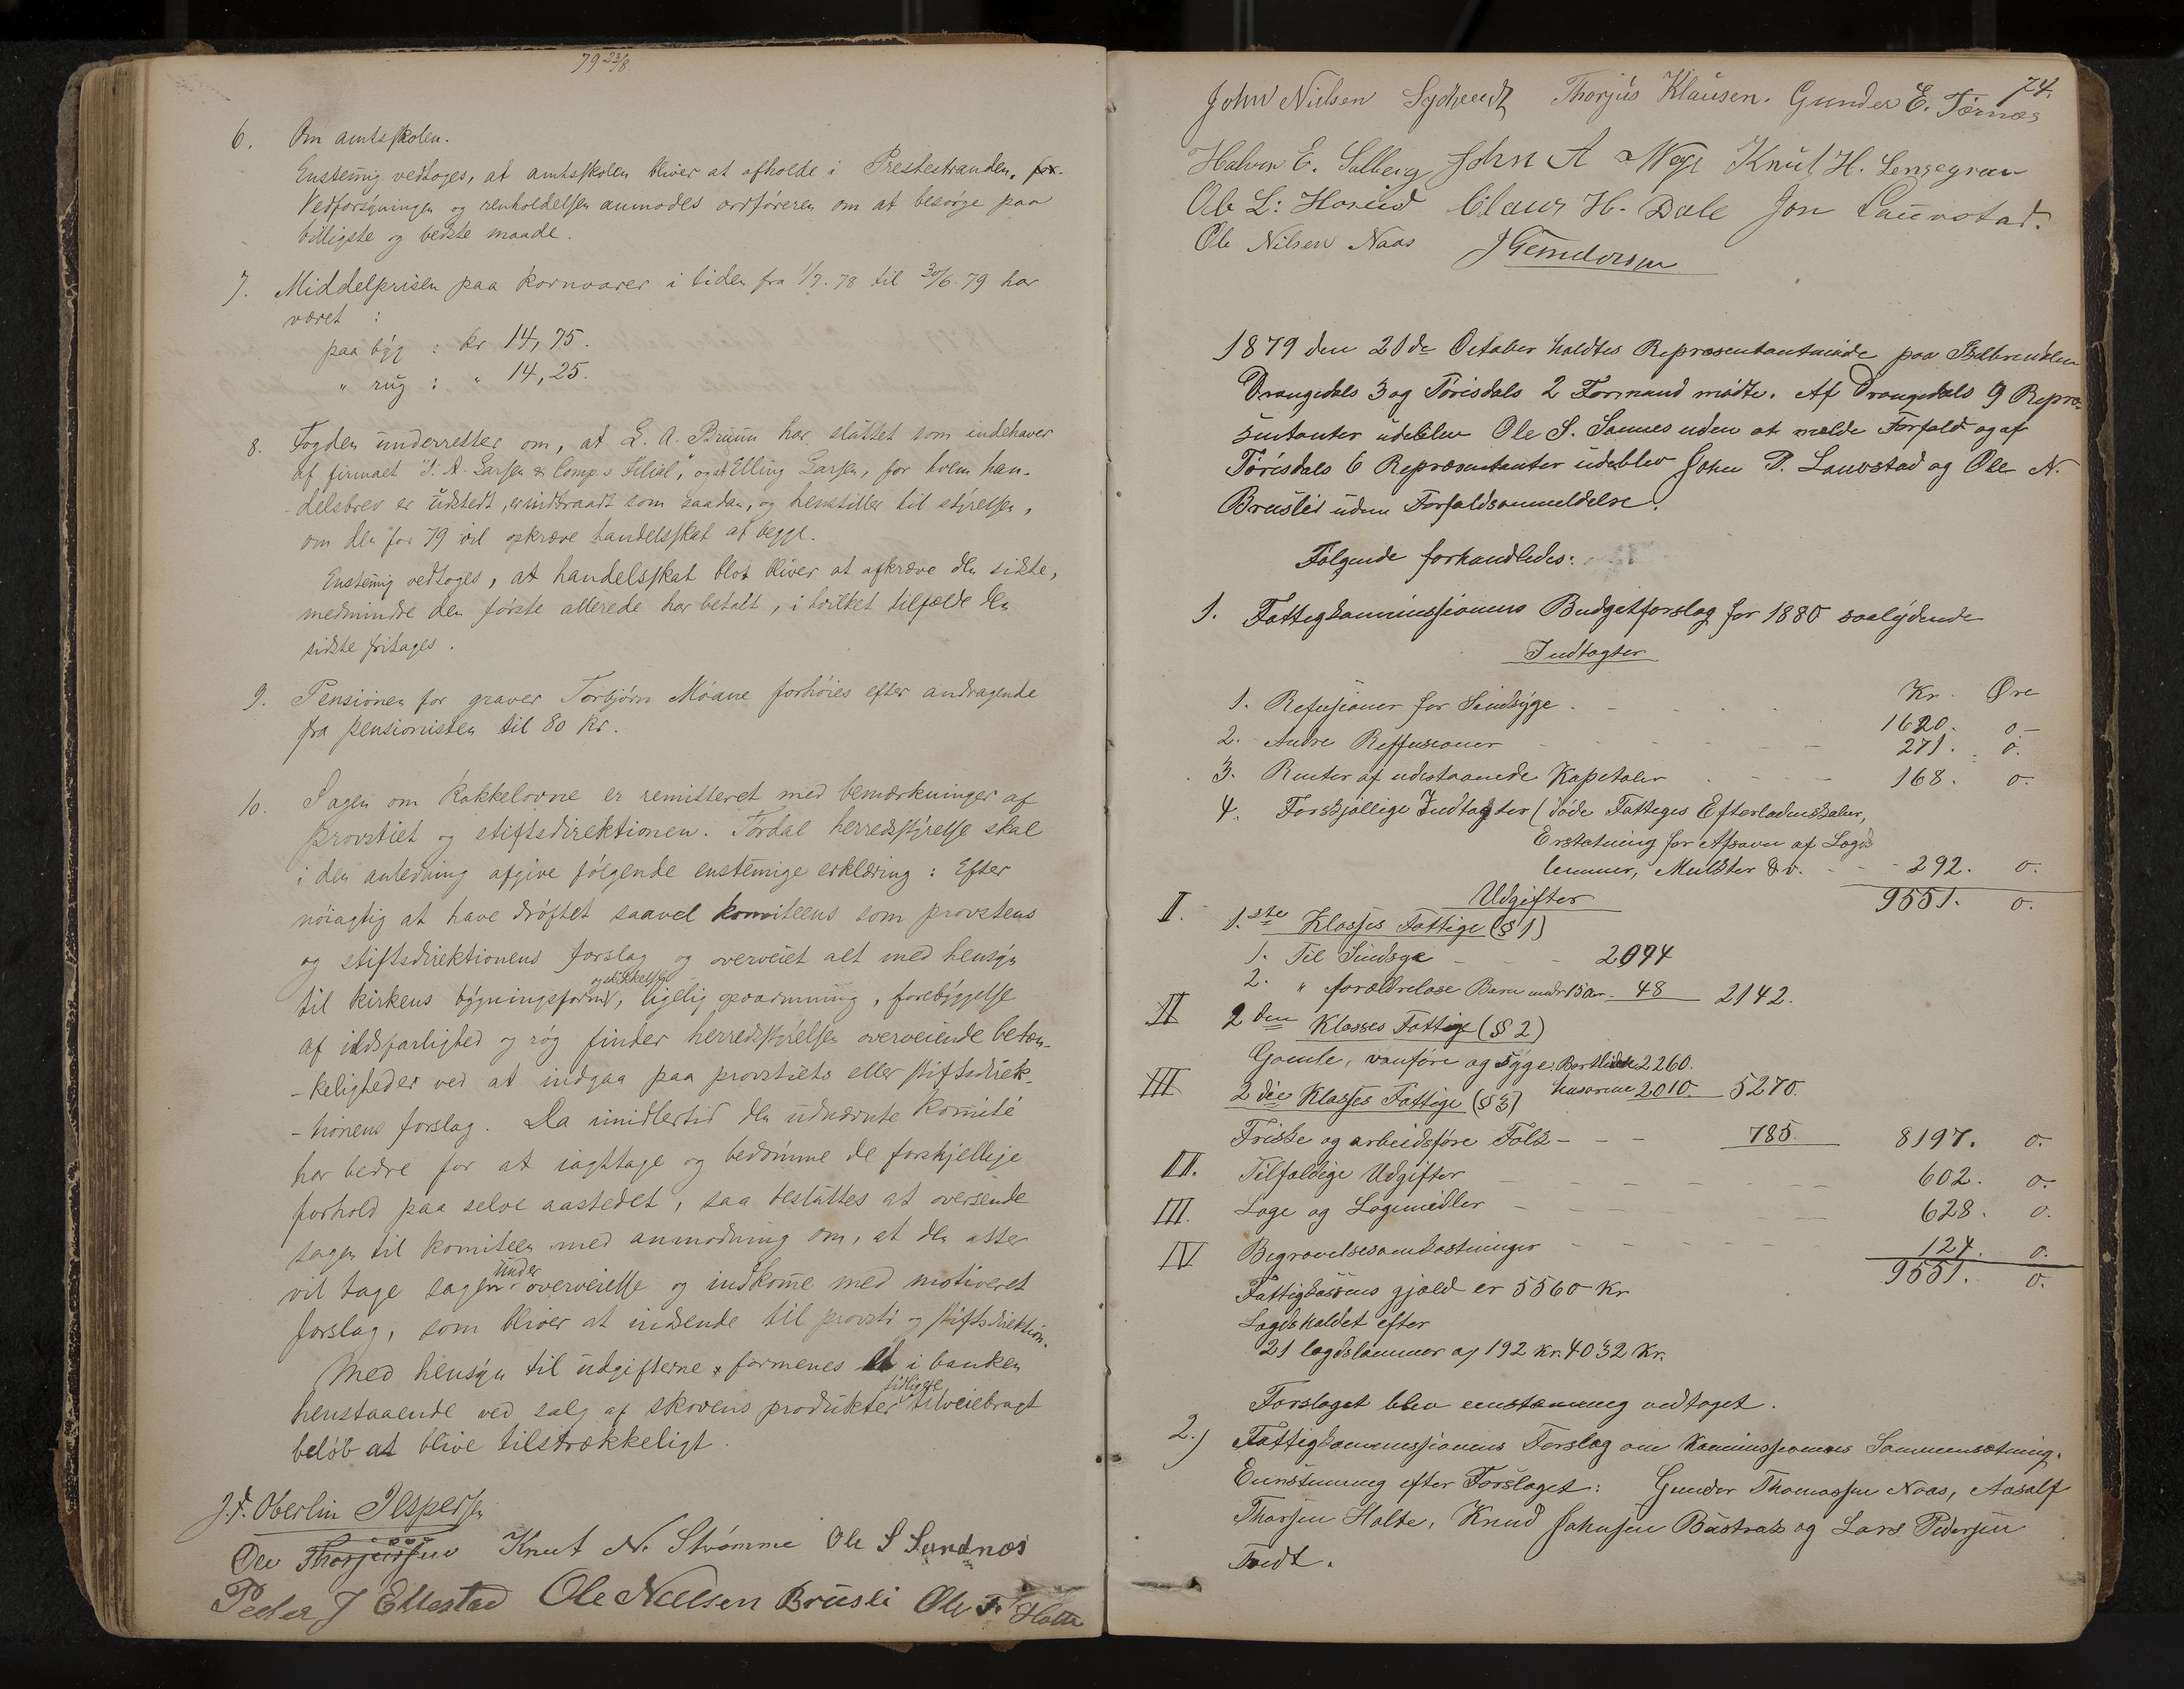 79 23/8
6. Om amtsskolen.
Enstemig vedtoges, at amtsskolen bliver at afholde i Prestestranden. for.
Vedforsyningen og renholdelsen anmodes ordføreren om at besørge paa
billigste og bedste maade.
7. Middelprisen paa kornvarer i tiden fra 1/7. 78 til 30/6. 79 har
været :
paa byg : kr 14,75.
" rug : " 14,25.
8. Fogden underretter om, at L. A. Bruun har sluttet som indehaver
af firmaet "S. A. Larsen & Comp.s Filial", og at Elling Larsen, for hvem han-
delsbrev er udstedt, er indtraadt som saadan, og henstiller til styrelsen,
om den for 79 vil opkræve handelsskat af begge.
Enstemig vedtoges, at handelsskat blot bliver at afkræve den sidste,
medmindre den første allerede har betalt, i hvilket tilfælde den
sidste fritages.
9. Pensionen for graver Torbjørn Moane forhøies efter andragende
fra pensionisten til 80 kr.
10. Sagen om kakkelovne er remitteret med bemærkninger af
provstiet og stiftsdirektionen. Tørdal herredsstyrelse skal
i den anledning afgive følgende enstemige erklæring : Efter
nøiagtig at have drøftet saavel komiteens som provstens
og stiftsdirektionens forslag og overveiet alt med hensyn
til kirkens bygningsform og skikkelse, ligelig opvarmning, forebyggelse
af ildsfarlighed og røg finder herredsstyrelsen overveiende betæn-
-keligheder ved at indgaa paa provstiets eller stiftsdirek-
-tionens forslag. Da imidlertid den udnævnte komité
har bedre for at iagttage og bedømme de forskjellige
forhold paa selve aastedet, saa besluttes at oversende
sagen til komiteen med anmodning om, at den atter
vil tage sagen under overveielse og indkomme med motiveret
forslag, som bliver at indsende til provsti og stiftsdirektion.
Med hensyn til udgifterne formenes et i banken
henstaaende ved salg af skovens produkter tidligere tilveiebragt
beløb at blive tilstrækkeligt.
J. F. Oberlin Jespersen
Ole Thorjussen Knut N. Strømme Ole S Sandnes
Peder J Ellestad Ole Nielsen Brusli Ole T. Holte
74.
John Nielsen Thorjus Klausen. Gunder E. Tørnæs
Halvor E. Solberg John A Knut H.
Ole L: Claus H. Dale Jon Lauvstad.
Ole Nilsen Naas J Gundersen
1879 den 21de October holdtes Repræsentantmøde paa
Drangedals 3 og Tørisdals 2 Formænd mødte. Af Drangedals 9 Repræ-
sentanter udeblev Ole S. Sannes uden at melde Forfald og af
Tørisdals 6 Repræsentanter udeblev John P. Lauvstad og Ole N.
Bruslei uden Forfaldsanmeldelse.
Følgende forhandledes:
1. Fattigkommissionens Budgetforslag for 1880 saalydende
Indtægter
Kr. Øre
1. Refusioner for Sindsyge 1620. 0
2. Andre Reffusioner 271. 0.
3. Renter af udestaaende Kapitaler 168. 0.
4. Forskjællige Indtægter (døde Fattiges Efterladenskaber,
Erstatning for Afsavn af Lægds
lemmer, Mulkter &v. 292. 0.
9551. 0.
Udgifter
II. 1.ste Klasses Fattige (§ 1)
1. Til Sindsyge 2094
2. " forældreløse Barn under 15 aar 48 2142.
II 2den Klasses Fattige (§ 2)
Gamle, vanføre og syge: Bortliciterede 2260.
husarme 2010. 5270.
III 3die Klasses Fattige (§ 3)
Friske og arbeidsføre Folk 785. 8197. 0.
II. Tilfældige Udgifter 602. 0.
III. Læge og Lægemidler 628. 0.
IV Begravelsesomkostninger 124. 0.
9551. 0.
Fattigkassens gjæld er 5560 Kr
Lægdsholdet efter
21 lægdslemmer a 192 Kr. 4032 Kr.
Forslaget blev eenstemmig vedtaget.
2.) Fattigkommissionens Forslag om Kommissionens Sammensætning.
Eenstemmig efter Forslaget: Gunder Thomassen Naas, Aasolf
Thorsen Holte, Knud Johnsen Bustrak og Lars Pedersen
Tvedt.